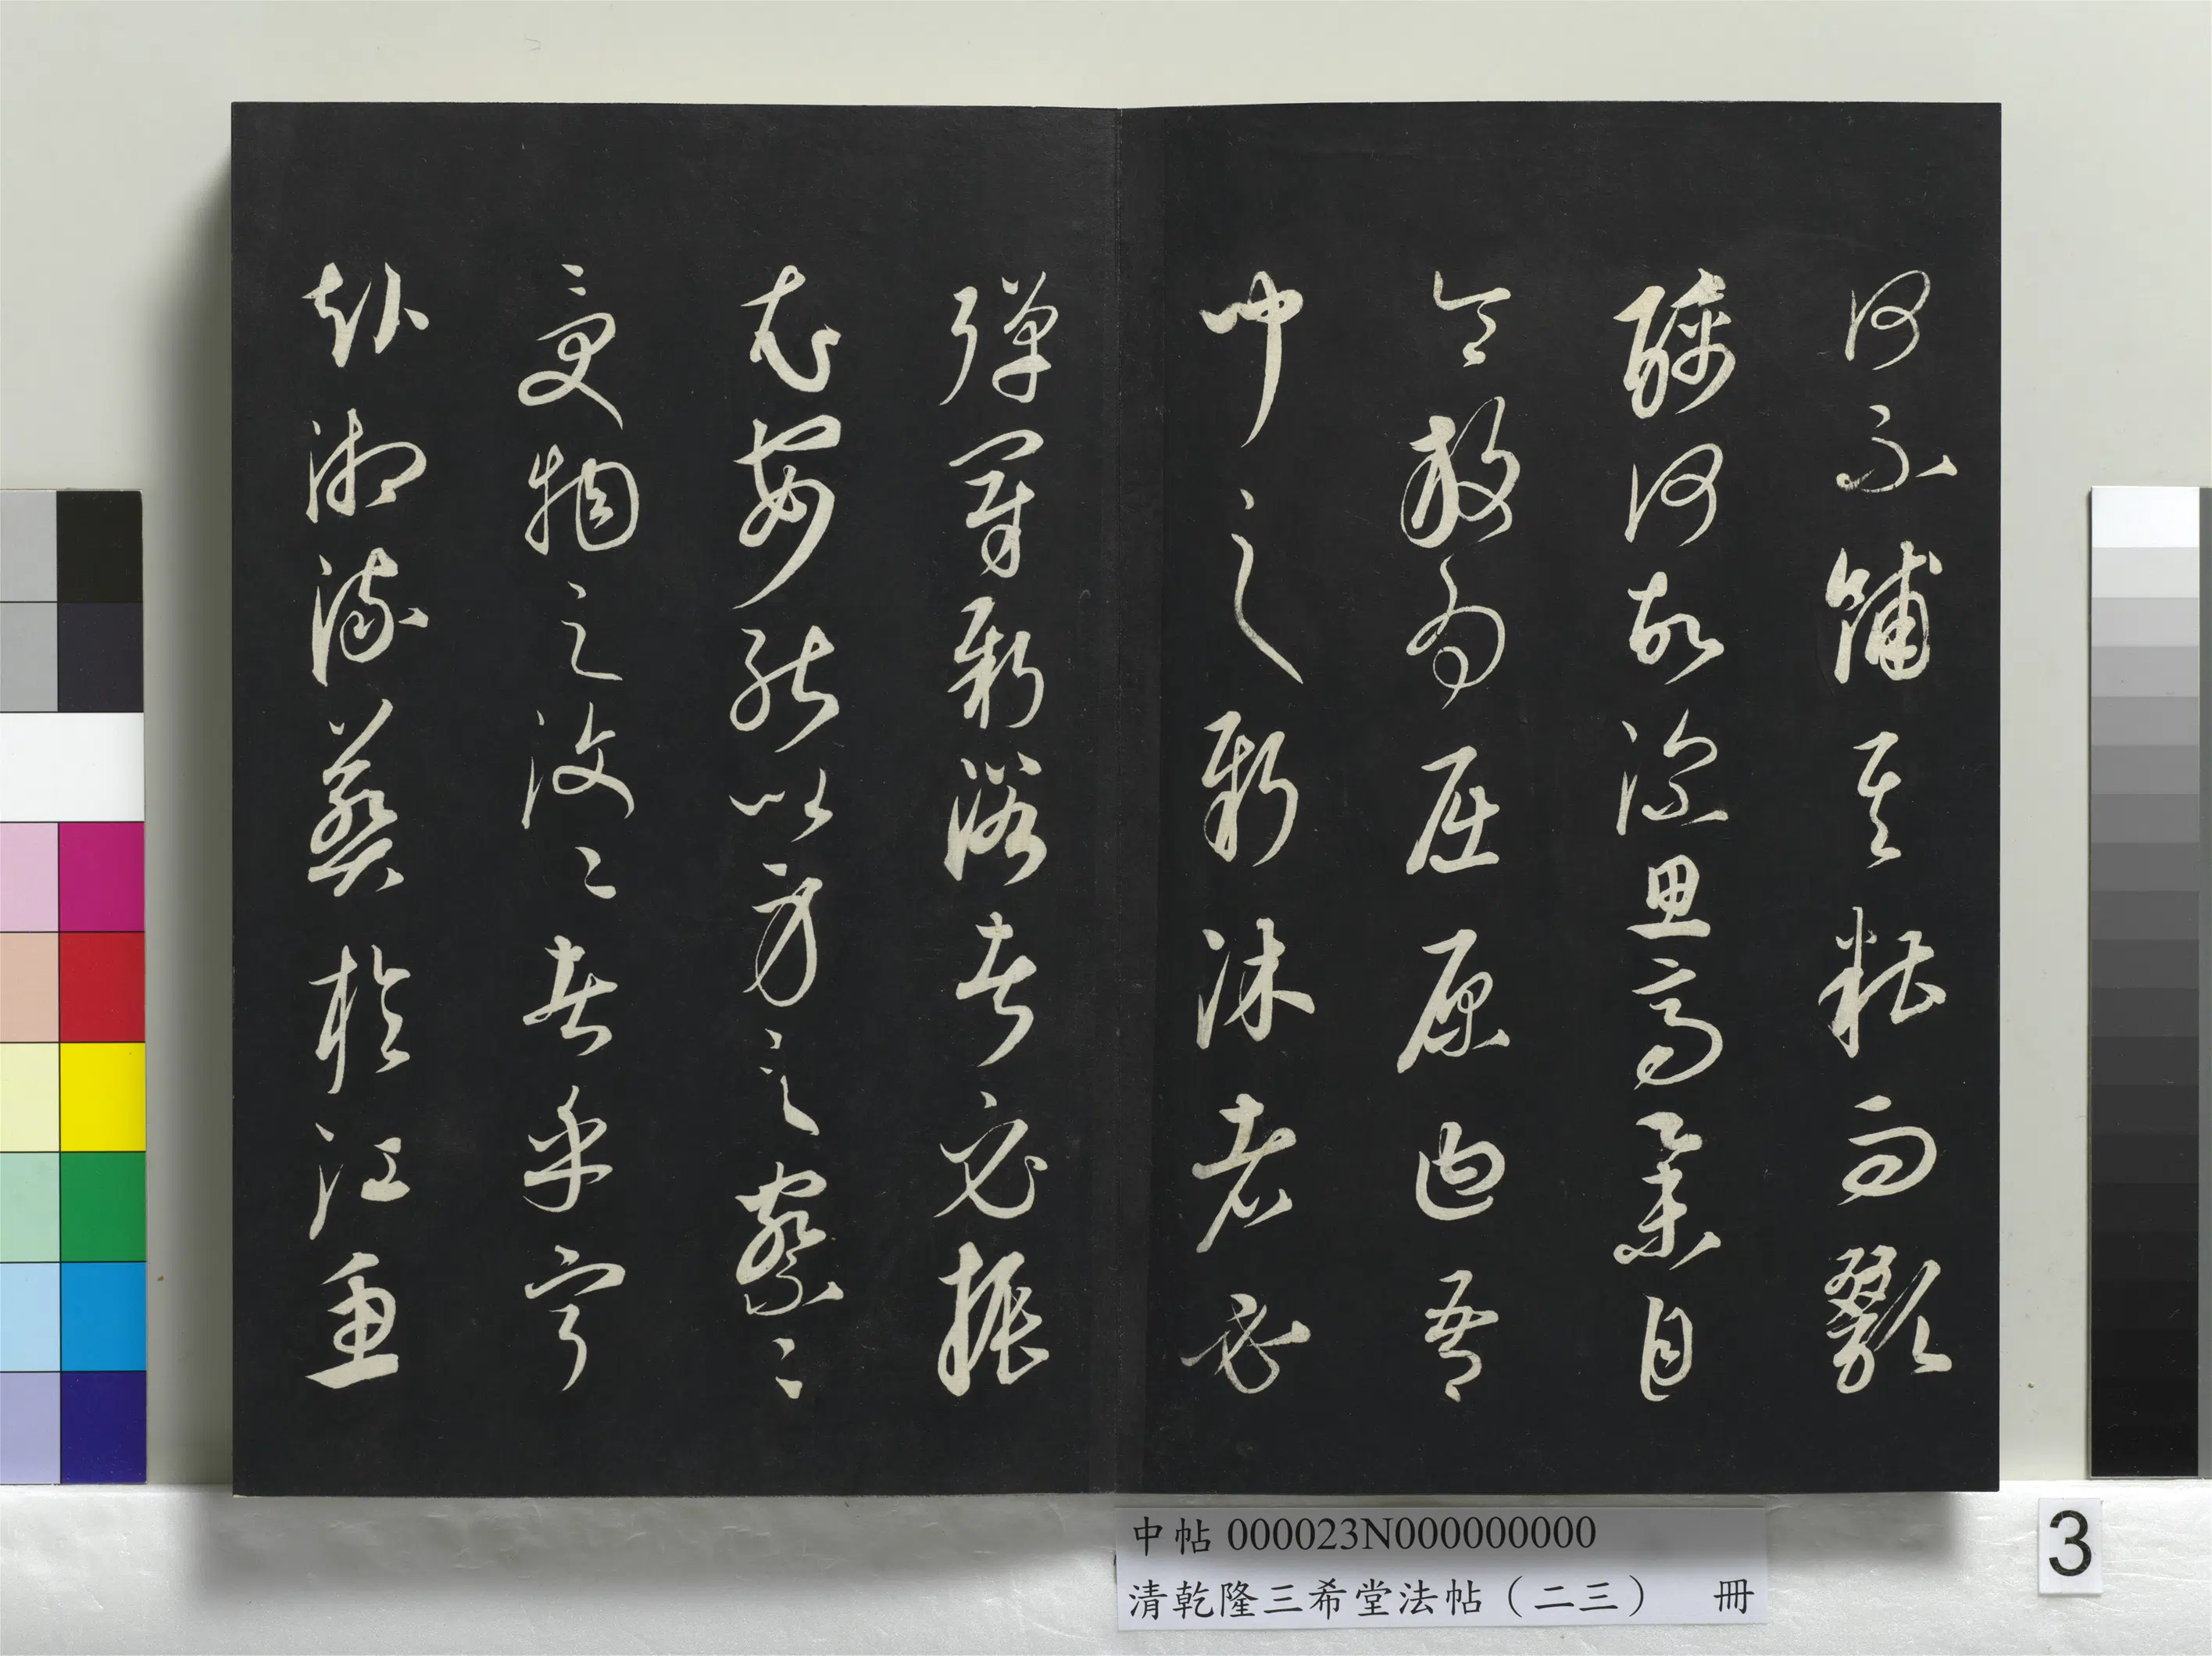 何不餔其糟而歠
醨何故深思高舉自
令放為屈原曰吾
聞之新沐者必
彈冠新浴者必振
衣安能以身之察〻
受物之汶〻者乎寧
赴湘流葬於江魚
中帖 000023N000000000
清乾隆三希堂法帖（二三） 冊
3